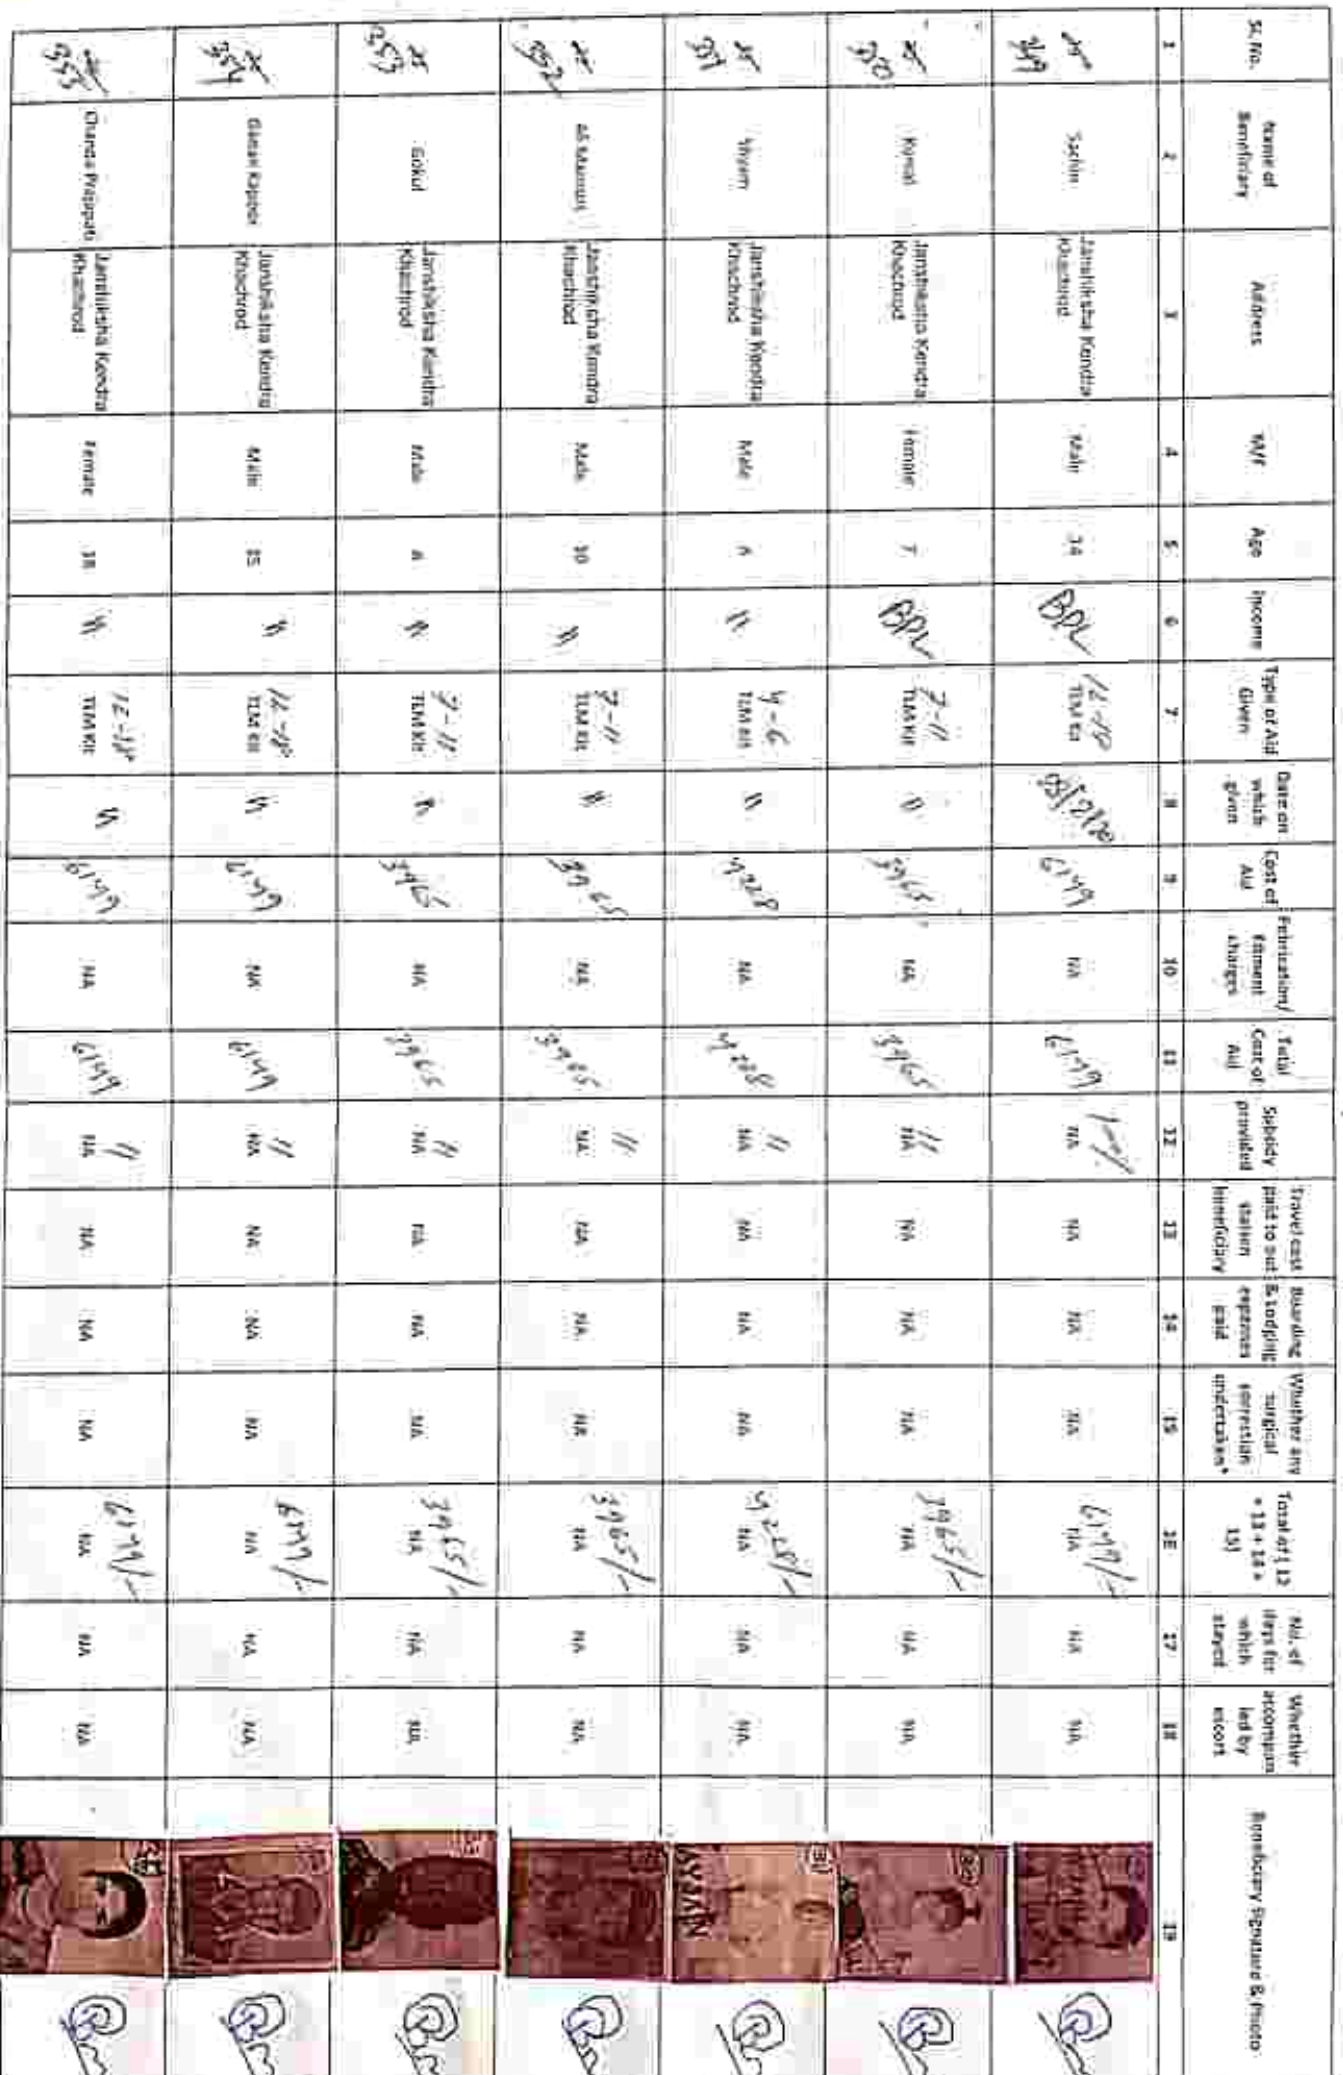 Sr. No. Name of Beneficiary Address M/F Age Income Type of Aid Given Date on which given Cost of Aid Febrication/ fitment charges Total Cost of Aid Subsidy provided Travel cost paid to out station beneficiary Boarding & Lodging expenses paid Whether any surgical correction undertaken* Total of ( 12 + 13 + 14 + 15) No. of days for which stayed Whether accompanied by escort Beneficiary Signature & Photo
1 2 3 4 5 6 7 8 9 10 11 12 13 14 15 16 17 18 19
349 Sachin Janshiksha Kendra Khachrod Male 14 BPL 12-18 TLM Kit 6149 NA 6149 NA NA NA NA 6149/- NA NA NA
350 Komal Janshiksha Kendra Khachrod Female 7 BPL 7-11 TLM Kit 11 3965 NA 3965 11 NA NA NA NA 3965/- NA NA NA
351 Janshiksha Kendra Khachrod Male 6 11 4-6 TLM Kit 11 4228 NA 4228 11 NA NA NA NA 4228/- NA NA NA
352 Janshiksha Kendra Khachrod Male 10 11 7-11 TLM Kit 11 3965 NA 3965 11 NA NA NA NA 3965/- NA NA NA
353 Gokul Janshiksha Kendra Khachrod Male 11 7-11 TLM Kit 11 3965 NA 3965 11 NA NA NA NA 3965/- NA NA NA
354 Janshiksha Kendra Khachrod Male 15 11 12-18 TLM Kit 11 6149 NA 6149 11 NA NA NA NA 6149/- NA NA NA
355 Chanda Prajapati Janshiksha Kendra Khachrod Female 18 11 12-18 TLM Kit 11 6149 NA 6149 11 NA NA NA NA 6149/- NA NA NA